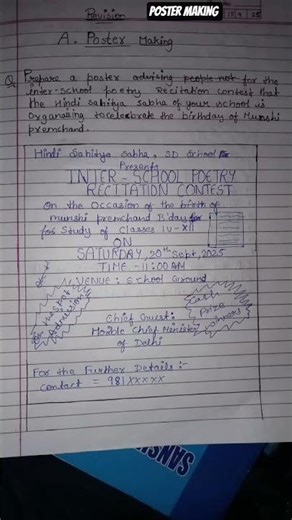 POSTER MAKING
Revision
A. Poster Making
Q Prepare a poster advising people not for the
inter-school poetry Recitation contest that
the Hindi Sahitya Sabha of your school is
Organising to celebrate the birthday of Munshi
premchand.
Hindi Sahitya Sabha. SD School
Present
INTER-SCHOOL POETRY
RECITATION CONTEST
On the Occasion of the birth of
munshi premchand B'day for
for Study of Classes IV-XII
ON
SATURDAY, 20th Sept, 2025
TIME - 11:00AM
VENUE : School Ground
On the spot
Admission
Cash
Prize
Chief Guest:
Honble Chief Minister
of Delhi
For the Further Details :-
Contact = 981XXXXX
SANS